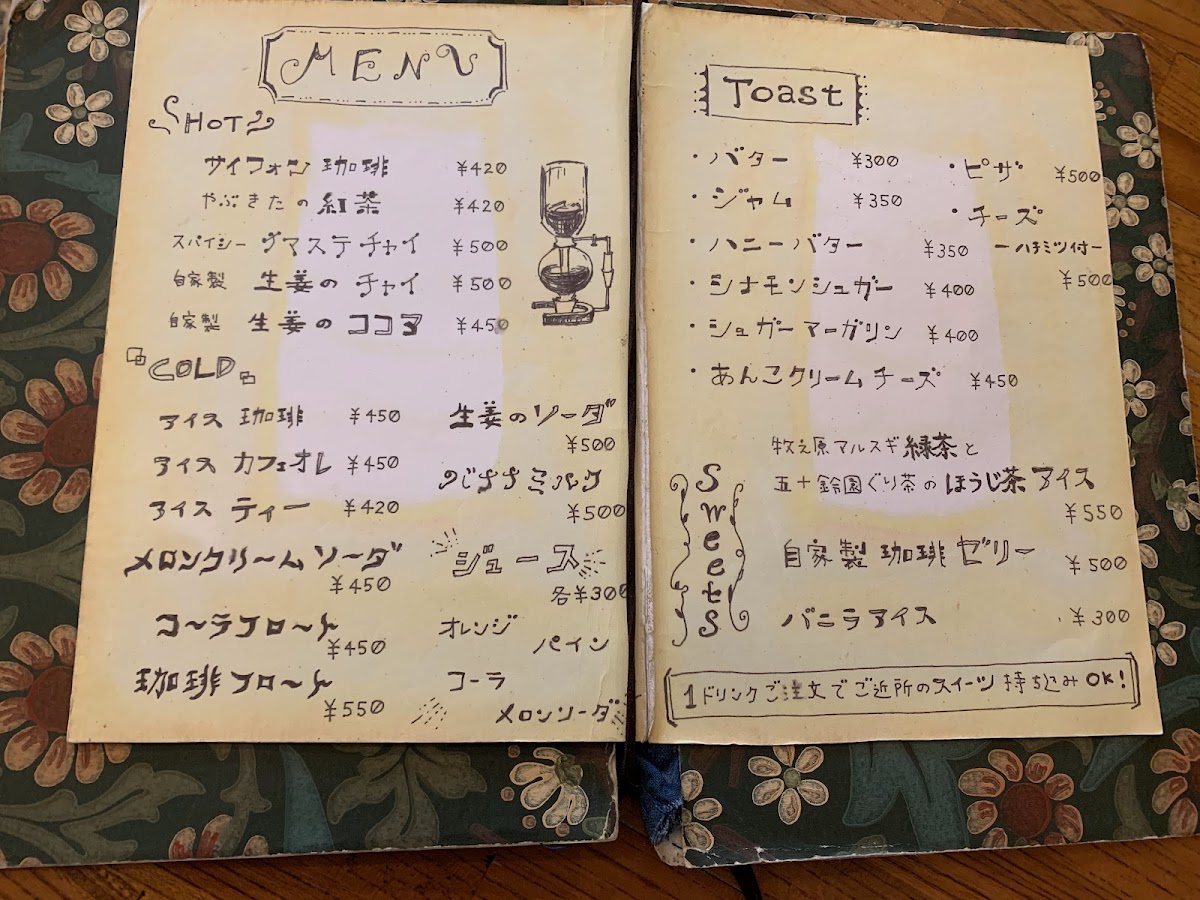 MENU
HOT
サイフォン 珈琲 ¥420
やぶきたの 紅茶 ¥420
スパイシー グマステチャイ ¥500
自家製 生姜の チャイ ¥500
自家製 生姜の ココア ¥450
COLD
アイス 珈琲 ¥450
アイス カフェオレ ¥450
アイス ティー ¥420
メロンクリームソーダ
¥450
コーラフロート
¥450
珈琲フロート
¥550
生姜のソーダ
¥500
バナナミルク
¥500
ジュース
各¥300
オレンジ
パイン
コーラ
メロンソーダ
Toast
・バター ¥300
・ジャム ¥350
・ハニーバター ¥350
・シナモンシュガー ¥400
・シュガーマーガリン ¥400
・あんこクリームチーズ ¥450
・ピザ ¥500
・チーズ
ーハチミツ付ー
¥500
Sweets
牧之原マルスギ緑茶と
五十鈴園ぐり茶のほうじ茶アイス
¥550
自家製 珈琲ゼリー ¥500
バニラアイス ¥300
1ドリンクご注文でご近所のスイーツ持ち込みOK!